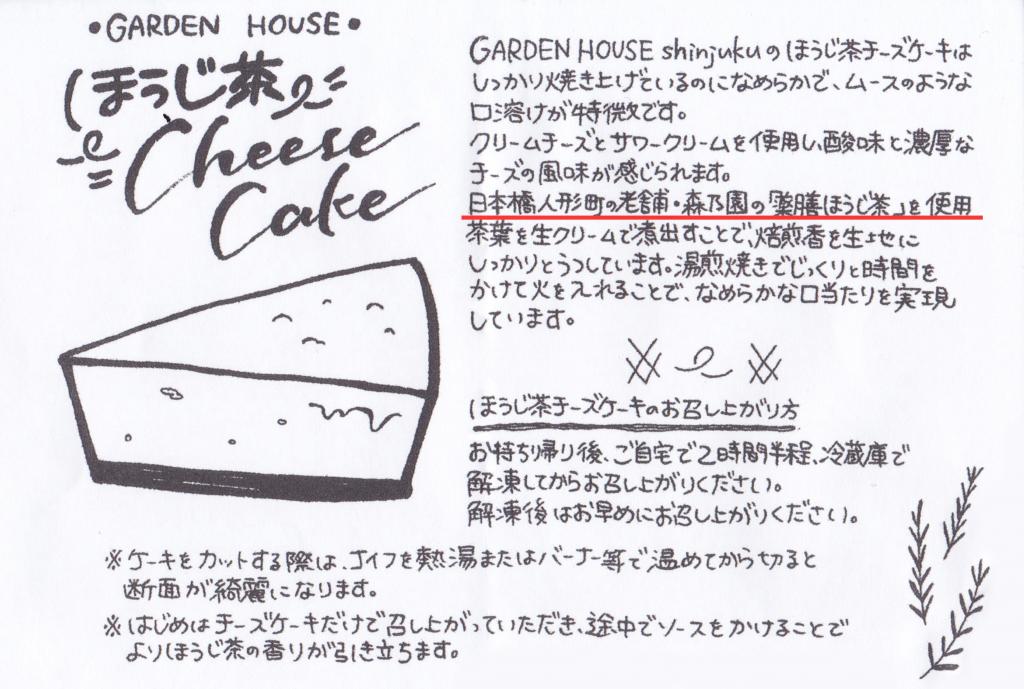 •GARDEN HOUSE•
ほうじ茶
Cheese
Cake
GARDEN HOUSE shinjukuのほうじ茶チーズケーキは
しっかり焼き上げているのになめらかで、ムースのような
口溶けが特徴です。
クリームチーズとサワークリームを使用し、酸味と濃厚な
チーズの風味が感じられます。
日本橋人形町の老舗・森乃園の「薬膳ほうじ茶」を使用
茶葉を生クリームで煮出すことで、焙煎香を生地に
しっかりとうつしています。湯煎焼きでじっくりと時間を
かけて火を入れることで、なめらかな口当たりを実現
しています。
ほうじ茶チーズケーキのお召し上がり方
お持ち帰り後、ご自宅で2時間半程、冷蔵庫で
解凍してからお召し上がりください。
解凍後はお早めにお召し上がりください。
※ケーキをカットする際は、ナイフを熱湯またはバーナー等で温めてから切ると
断面が綺麗になります。
※はじめはチーズケーキだけで召し上がっていただき、途中でソースをかけることで
よりほうじ茶の香りが引き立ちます。